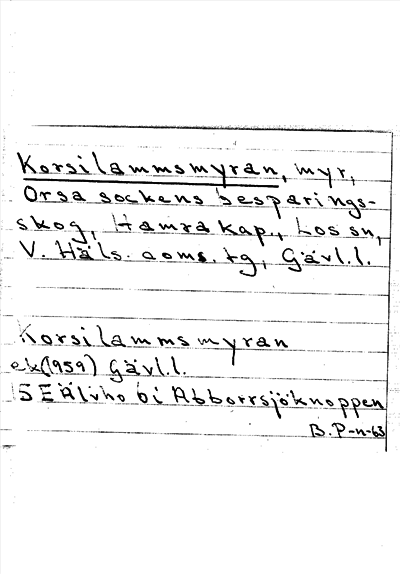 Korsilammsmyran, myr,
Orsa sockens besparings-
skog, Hamra kap., Los sn,
V. Häls. doms. tg, Gävl.l.
Korsilammsmyran
ek (1959) Gävl.l.
SE Älvho bi Abborrsjöknoppen
B.P-n-63